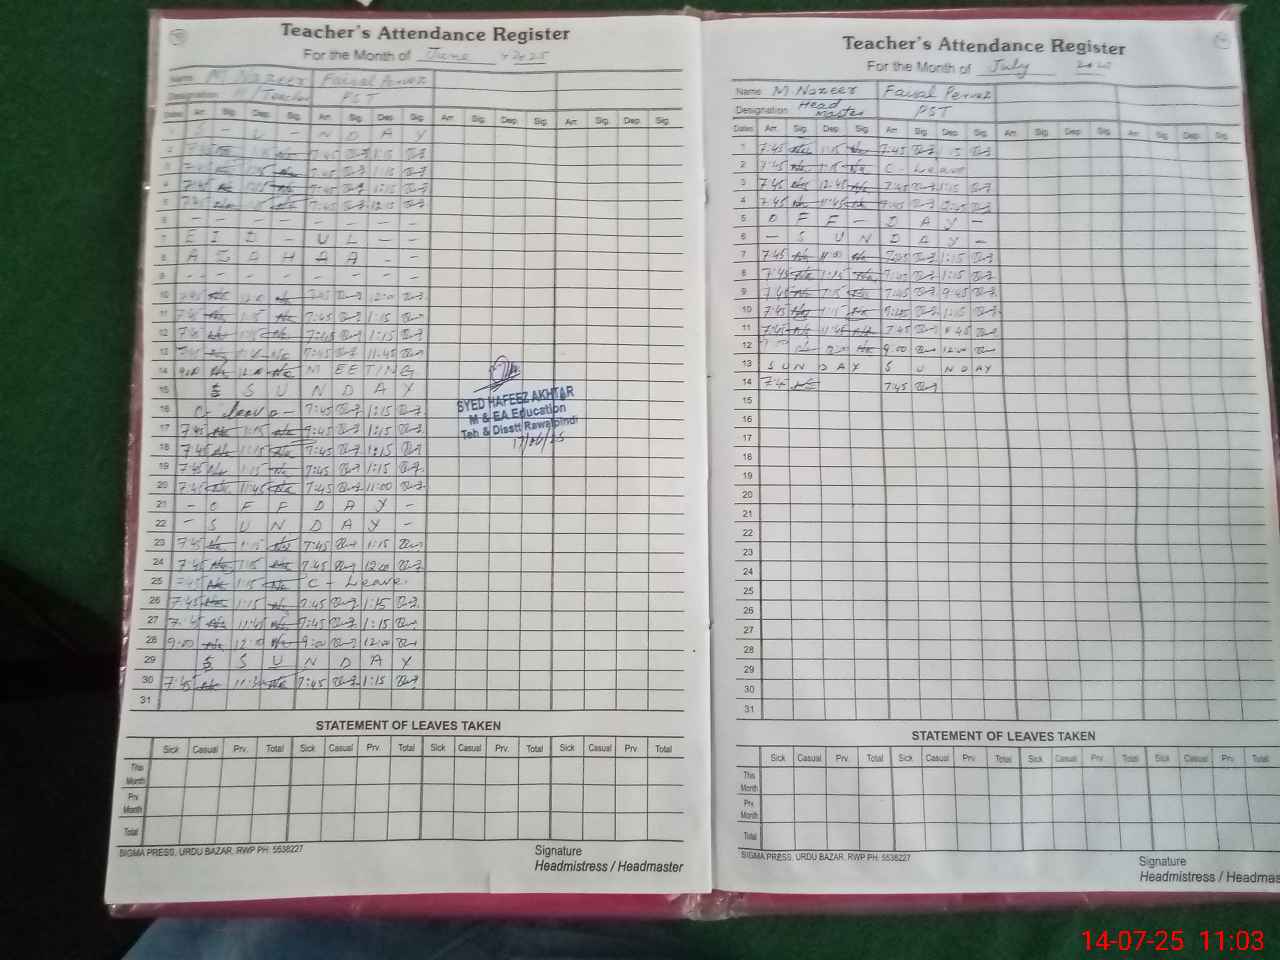 Teacher's Attendance Register
For the Month of June 2025
Name M Nazeer Faisal Pervez
Designation H/Teacher PST
Dates Arr. Sig. Dep. Sig. Arr. Sig. Dep. Sig. Arr. Sig. Dep. Sig. Arr. Sig. Dep. Sig.
1 S - U - N D A Y
2 7:45 1:15 7:45 1:15
3 7:45 1:15 7:45 1:15
4 7:45 1:15 7:45 1:15
5 7:45 7:45 12:15
6 - - - - - - - -
7 E I D - U L - -
8 A Z A H A A - -
9 - - - - - - - -
10 7:45 7:45 12:00
11 7:45 1:15 7:45 1:15
12 7:45 1:15 7:45 1:15
13 7:45 7:45 11:45
14 9:00 MEETING
15 S S U N D A Y
16 C - leave - 7:45 1:15
17 7:45 1:15 7:45 1:15
18 7:45 1:15 7:45 1:15
19 7:45 1:15 7:45 1:15
20 7:45 11:45 7:45 11:00
21 - O F F D A Y -
22 - S U N D A Y -
23 7:45 1:15 7:45 1:15
24 7:45 1:15 7:45 12:00
25 7:45 1:15 C - Leave.
26 7:45 1:15 7:45 1:15
27 7:45 11:45 7:45 1:15
28 9:00 12:00 9:00 12:00
29 S S U N D A Y
30 7:45 7:45 1:15
31
SYED HAFEEZ AKHTAR
M & EA Education
Teh & Disstt Rawalpindi
17/06/25
STATEMENT OF LEAVES TAKEN
Sick Casual Prv. Total Sick Casual Prv. Total Sick Casual Prv. Total Sick Casual Prv. Total
This Month
Prv. Month
Total
SIGMA PRESS, URDU BAZAR, RWP PH: 5538227
Signature
Headmistress / Headmaster
Teacher's Attendance Register
For the Month of July
Name M Nazeer Faisal Pervez
Designation Head master PST
Dates Arr. Sig. Dep. Sig. Arr. Sig. Dep. Sig. Arr. Sig. Dep. Sig. Arr. Sig. Dep. Sig.
1 7:45 1:15 7:45 1:15
2 7:45 1:15 C - Leave
3 7:45 12:45 7:45 1:15
4 7:45 11:45 7:45
5 O F F - D A Y -
6 - S U N D A Y -
7 7:45 7:45 1:15
8 7:45 1:15 7:45 1:15
9 7:45 1:15 7:45 9:45
10 7:45 1:15 7:45 1:15
11 7:45 11:45 7:45
12 9:00 12:00
13 S U N D A Y S U N D A Y
14 7:45 7:45
15
16
17
18
19
20
21
22
23
24
25
26
27
28
29
30
31
STATEMENT OF LEAVES TAKEN
Sick Casual Prv. Total Sick Casual Prv. Total Sick Casual Prv. Total Sick Casual Prv. Total
This Month
Prv. Month
Total
SIGMA PRESS, URDU BAZAR, RWP PH: 5538227
Signature
Headmistress / Headmas
14-07-25 11:03